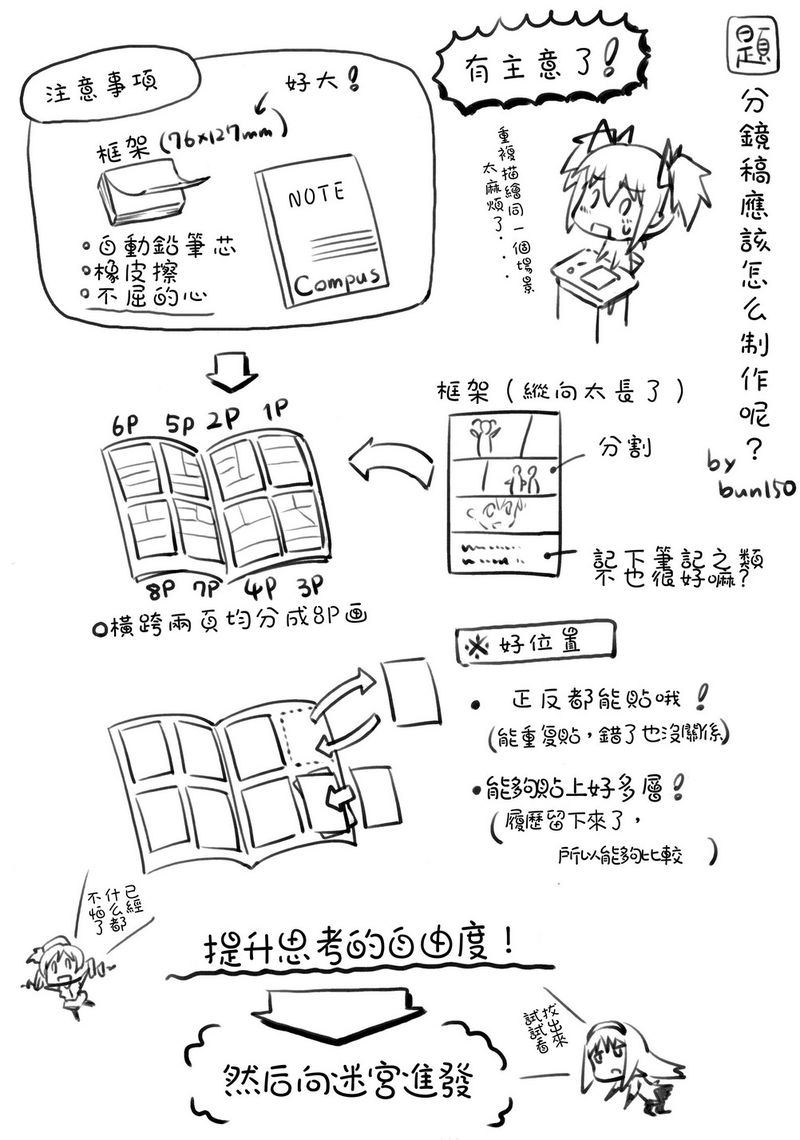 題
分鏡稿應該怎么制作呢？
by
bun150
有主意了！
重複描繪同一個場景
太麻煩了・・・
注意事項
好大！
框架(76×127mm)
自動鉛筆芯
橡皮擦
不屈的心
NOTE
Compus
框架（縱向太長了）
分割
記下筆記之類
不也很好嘛？
6P 5P 2P 1P
8P 7P 4P 3P
橫跨兩頁均分成8P画
※好位置
・正反都能貼哦！
(能重复貼，錯了也沒關係)
・能夠貼上好多層！
(履歷留下來了，
所以能夠比較)
已經都
什么
不怕了
提升思考的自由度！
然后向迷宮進發
拔出來
試試看